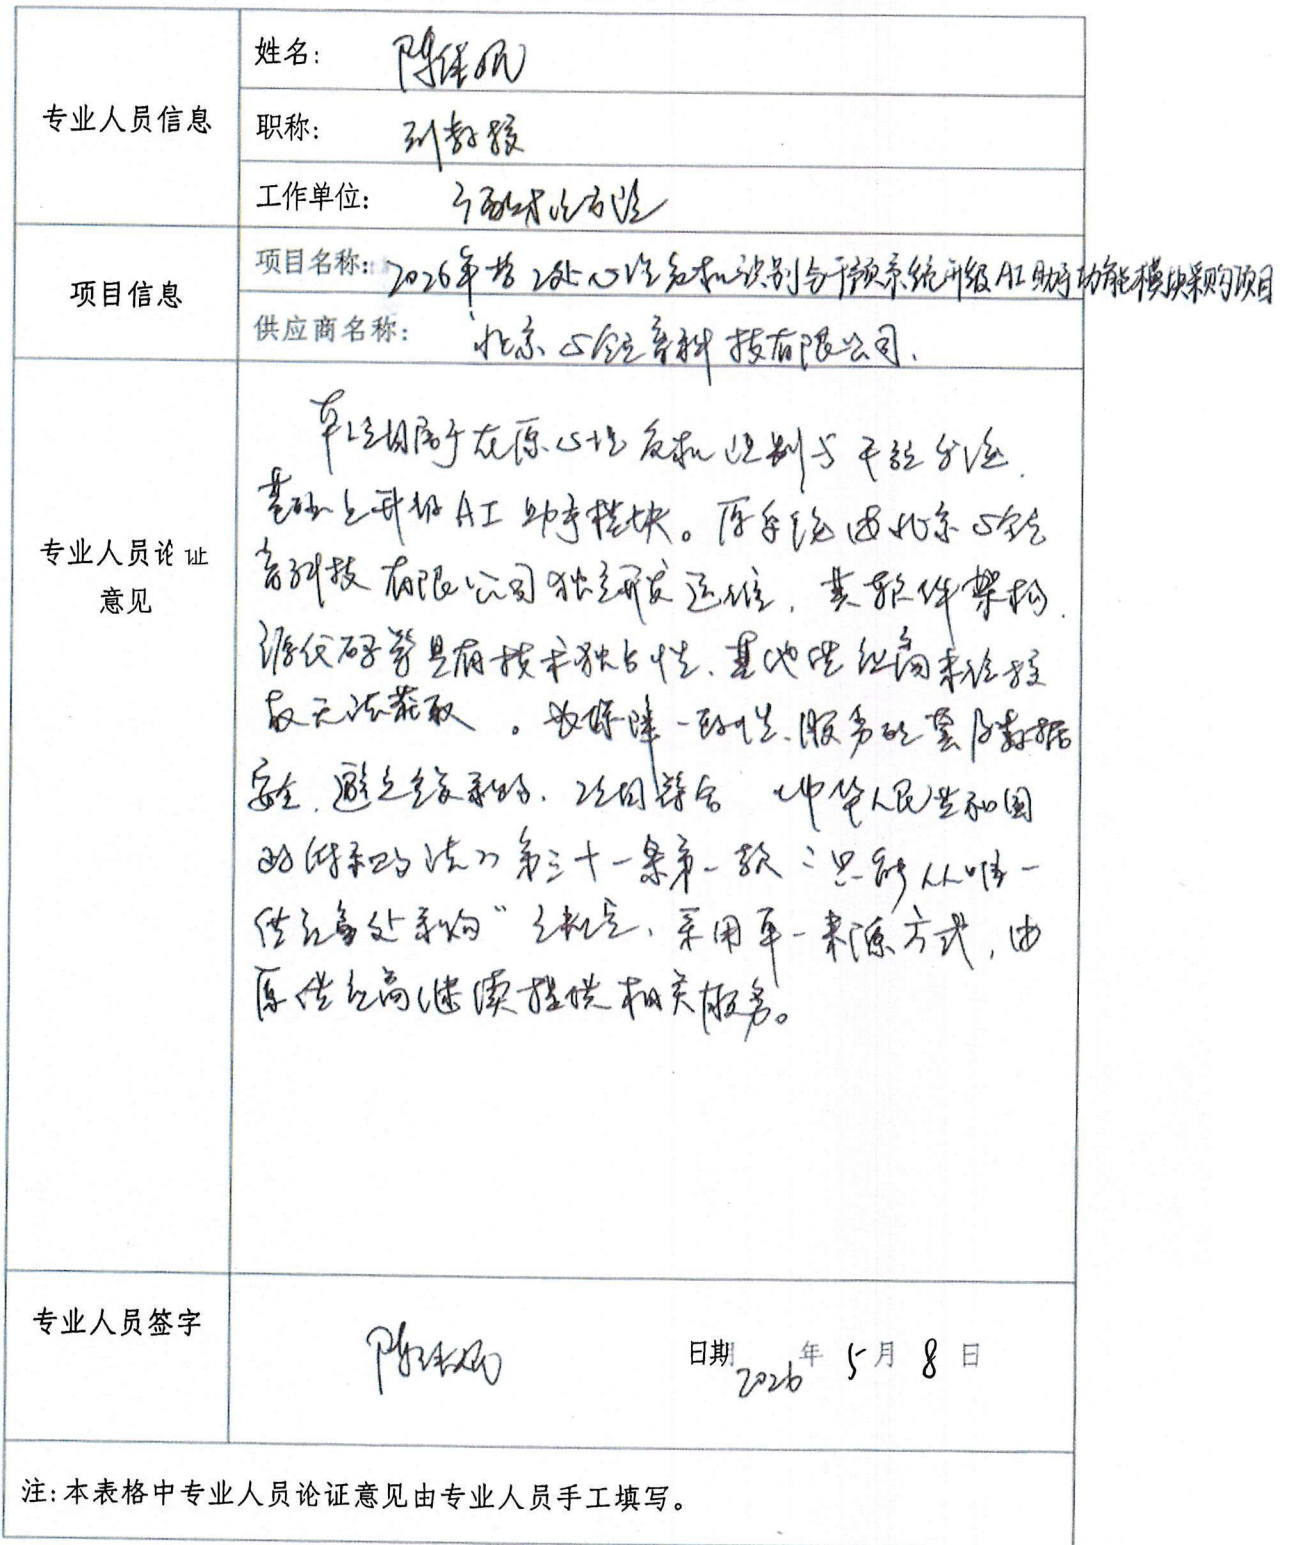 专业人员信息
姓名:
陈继
职称:
副教授
工作单位:
项目信息
项目名称:
2026年 心理危机识别与干预系统升级AI助手功能模块采购项目
供应商名称:
北京心 科技有限公司.
专业人员论证
意见
本项目属于在原心理危机识别与干预系统
基础上升级AI助手模块。原系统由北京心
科技有限公司独立开发运维,其软件架构、
源代码等具有技术独占性、其他供应商未经授
权无法获取。为保障一致性、服务配套及数据
安全,避免重复采购、项目符合《中华人民共和国
政府采购法》第三十一条第一款“只能从唯一
供应商处采购”之规定、采用单一来源方式,由
原供应商继续提供相关服务。
专业人员签字
陈继
日期 2026年5月8日
注:本表格中专业人员论证意见由专业人员手工填写。